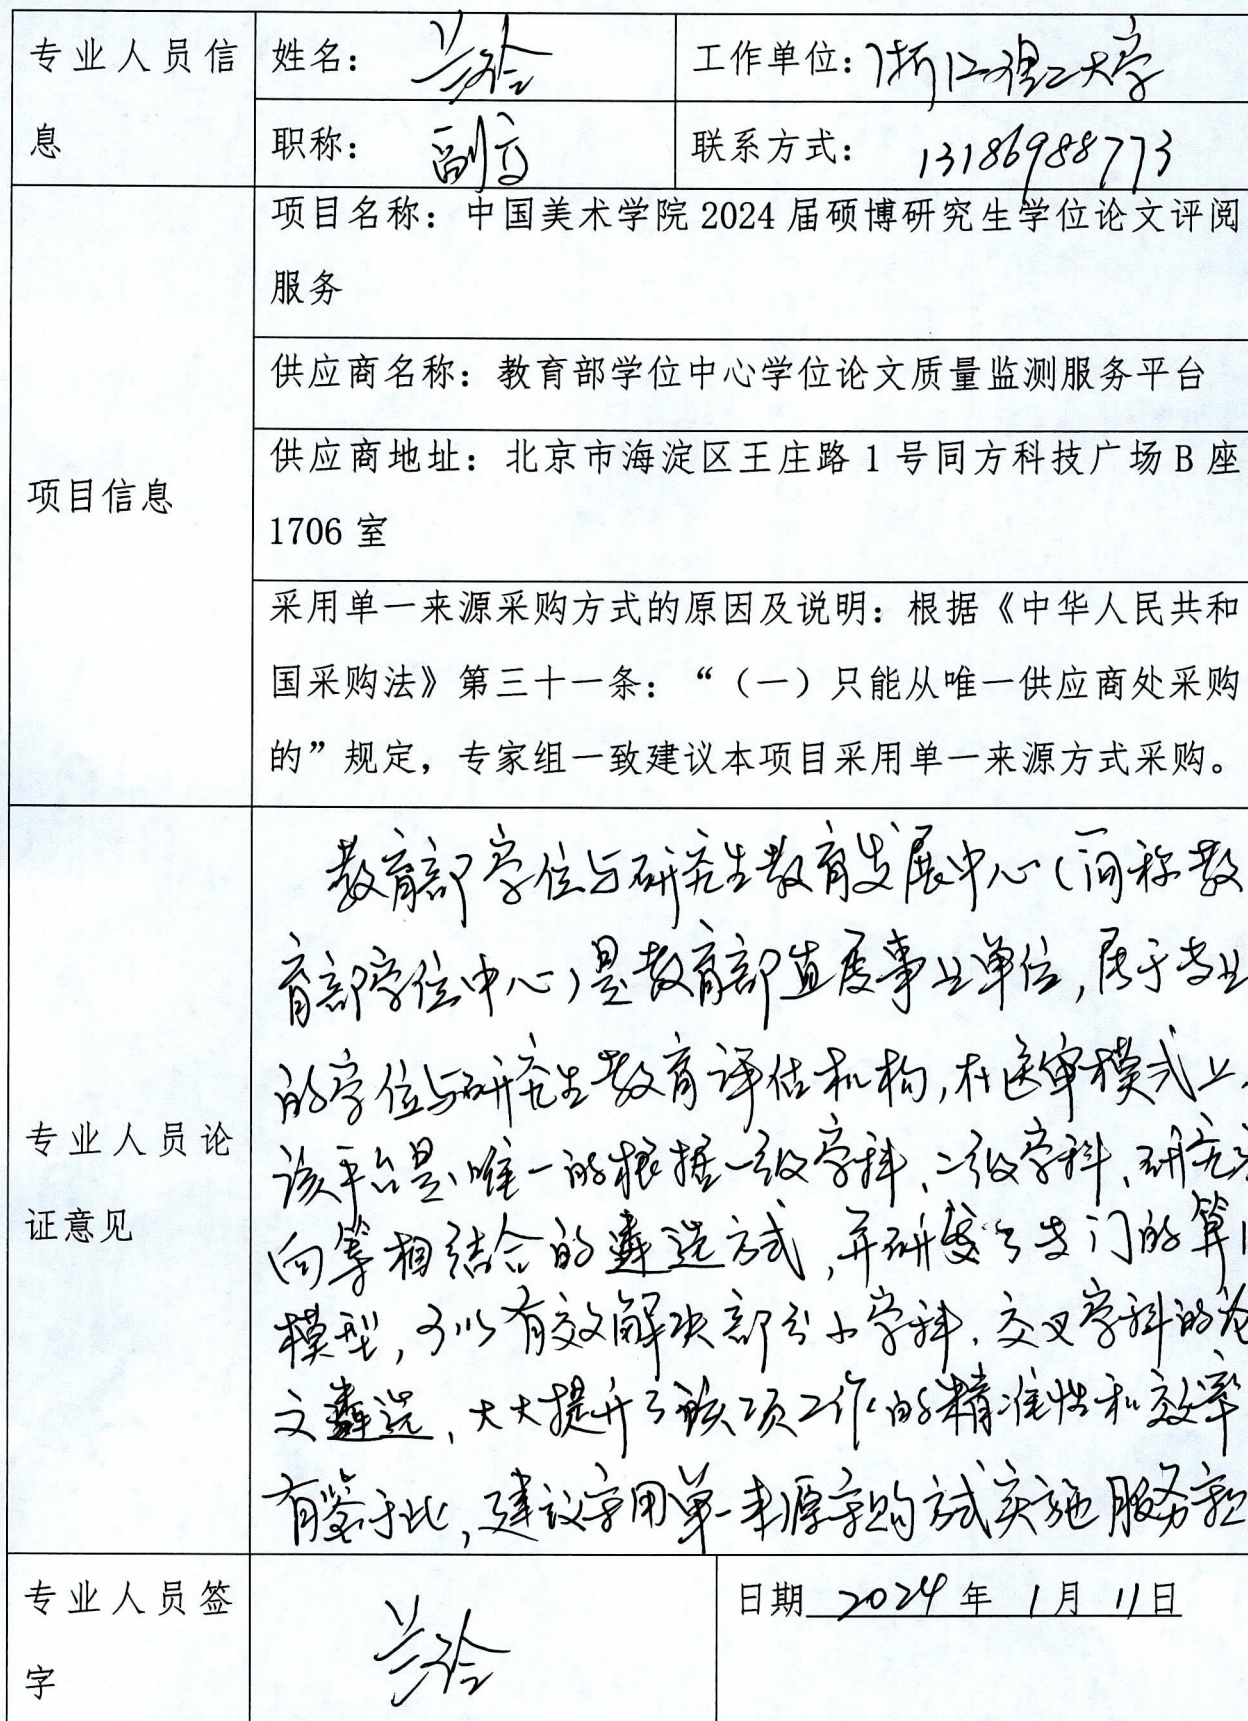 专业人员信息
姓名：兰玲
工作单位：浙江理工大学
职称：副高
联系方式：13186988773
项目信息
项目名称：中国美术学院 2024 届硕博研究生学位论文评阅
服务
供应商名称：教育部学位中心学位论文质量监测服务平台
供应商地址：北京市海淀区王庄路 1 号同方科技广场 B 座
1706 室
采用单一来源采购方式的原因及说明：根据《中华人民共和
国采购法》第三十一条：“（一）只能从唯一供应商处采购
的”规定，专家组一致建议本项目采用单一来源方式采购。
专业人员论
证意见
教育部学位与研究生教育发展中心（简称教
育部学位中心）是教育部直属事业单位，属于专业
的学位与研究生教育评估机构，在送审模式上，
该平台是唯一的根据一级学科、二级学科、研究方
向等相结合的遴选方式，并研发了专门的算法
模型，可以有效解决部分小学科、交叉学科的论
文遴选，大大提升了该项工作的精准性和效率
有鉴于此，建议采用单一来源采购方式实施服务采
专业人员签
字
日期 2024 年 1 月 11 日